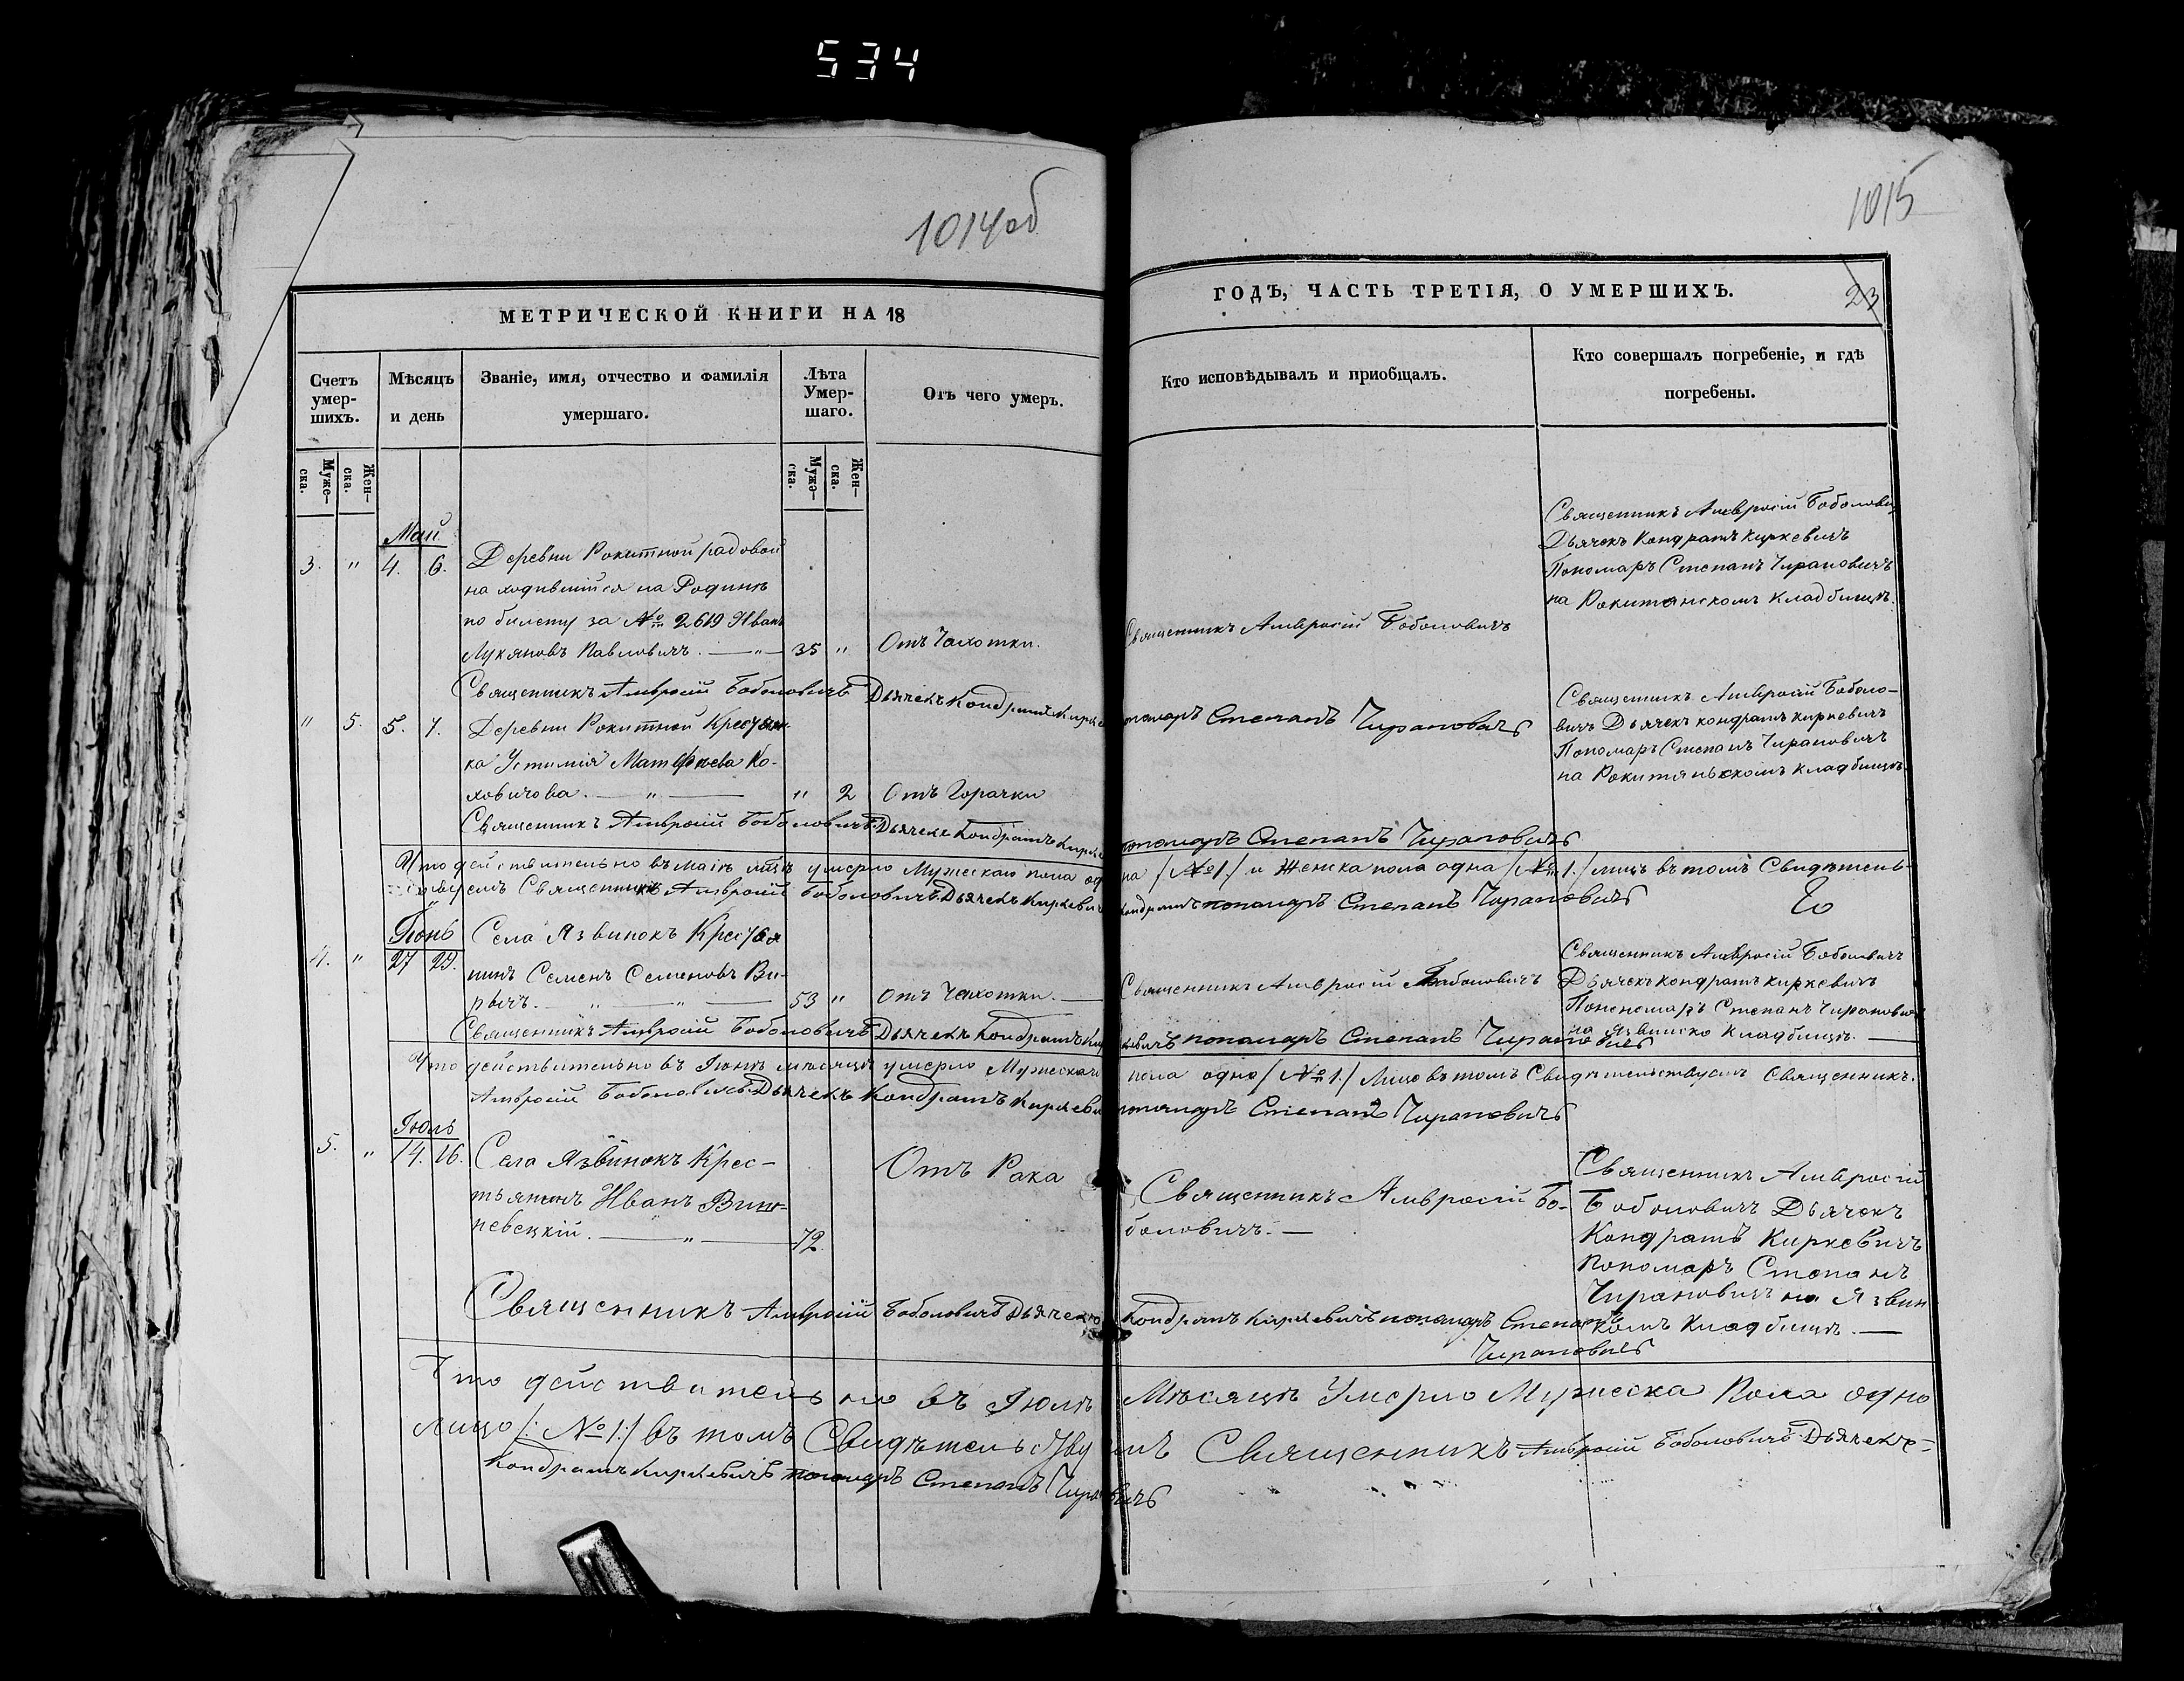 534
1014об
1015
МЕТРИЧЕСКОЙ КНИГИ НА 18
ГОДЪ, ЧАСТЬ ТРЕТІЯ, О УМЕРШИХЪ.
23
Счетъ умер-шихъ.
Мѣсяцъ и день
Званіе, имя, отчество и фамилія умершаго.
Лѣта Умер-шаго.
Отъ чего умеръ.
Кто исповѣдывалъ и пріобщалъ.
Кто совершалъ погребеніе, и гдѣ погребены.
Муже-ска.
Жен-ска.
Муже-ска.
Жен-ска.
Май
3. " 4. 6.
Деревни Рокитной рядовой
на ходившійся на Родинѣ
по билету за № 2619 Иванъ
Лукяновъ Павловичъ. — " — 35 "
Отъ Чахотки.
Священникъ Амвросій Боболовичъ
Священникъ Амвросій Боболович
Дьячекъ Кондратъ Киркевичъ
Пономаръ Степанъ Чирановичъ
на Рокитянскомъ кладбищѣ.
Священникъ Амвросій Боболовичъ Дьячекъ Кондратъ Кирке
пономаръ Степанъ Чирановичъ
" 5. 5. 7.
Деревни Рокитной Крестьян
ка Устимія Матфѣева Ко-
ховичова. — " — " 2
Отъ Горачки
Священникъ Амвросій Боболо-
вичъ Дьячекъ кондратъ киркевичъ
Пономаръ Степанъ Чирановичъ
на Рокитяньскомъ кладбищѣ.
Священникъ Амвросій Боболовичъ Дьячекъ Кондратъ Кирке
пономаръ Степанъ Чирановичъ
Что действительно въ маіѣ мцѣ умерло Мужескаго пола од
на /№1./ и Женска пола одна /№ 1./ лицъ въ томъ Свидѣтель-
Священникъ Амвросій Боболовичъ Дьячекъ Киркевич
Кондратъ пономаръ Степанъ Чирановичъ
Іюнь
4. " 27 29.
Села Язвинокъ Крестья
нинъ Семенъ Семеновъ Ви-
рычъ. — " — " — 53 "
Отъ Чахотки. —
Священникъ Амвросій Боболовичъ
Священникъ Амвросій Боболовичъ
Дьячекъ кондратъ киркевичъ
Пономаръ Степанъ Чирановичъ
на Язвинско кладбищѣ. —
Священникъ Амвросій Боболовичъ Дьячекъ Кондратъ Кир
кевичъ пономаръ Степанъ Чирановичъ
Что действительно въ Іюнѣ мѣсяцѣ умерло Мужескаго
пола одно /№ 1./ Лицо въ томъ Свидѣтельствуемъ Священникъ.
Амвросій Боболовичъ Дьячекъ Кондратъ Киркеви
пономаръ Степанъ Чирановичъ
Іюль
5. " 14. 16.
Села Язвинокъ Крес-
тьянинъ Иванъ Виш-
невецкій. — " — 72.
Отъ Рака
Священникъ Амвросій Бо-
боловичъ. —
Священникъ Амвросій
Боболовичъ Дьячекъ
Кондратъ Киркевичъ
Пономаръ Степанъ
Чирановичъ на Язвин
комъ кладбищѣ. —
Священникъ Амвросій Боболовичъ Дьячекъ
Кондратъ Киркевичъ пономаръ Степанъ
Чирановичъ
Что действительно въ Іюлѣ Мѣсяцѣ Умерло Мужеска Пола одно
лицо /: №1:/ въ томъ Свидѣтельствуемъ Священникъ Амвросій Боболовичъ Дьячекъ
Кондратъ Киркевичъ пономаръ Степанъ Чирановичъ